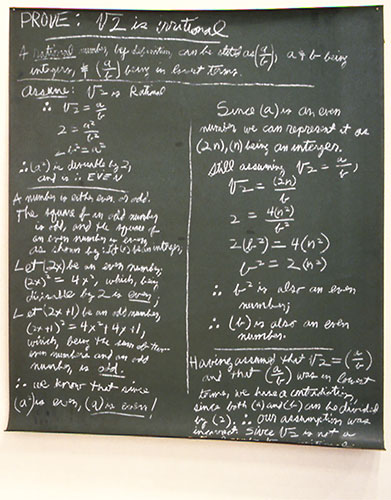 PROVE: √2 is irrational
A rational number, by definition, can be stated as (a/b), a & b being
integers, & (a/b) being in lowest terms.
Assume: √2 is Rational
∴ √2 = a/b
2 = a²/b²
2b² = a²
∴ (a²) is divisible by 2,
and is ∴ EVEN
A number is either even or odd.
The square of an odd number
is odd, and the square of
an even number is even,
as shown by: Let (x) be an integer,
Let (2x) be an even number;
(2x)² = 4x², which, being
divisible by 2 is even;
Let (2x+1) be an odd number,
(2x+1)² = 4x²+4x+1,
which, being the sum of two
even numbers and an odd
number, is odd.
∴ we know that since
(a²) is even, (a) is even!
Since (a) is an even
number we can represent it as
(2n), (n) being an integer.
Still assuming √2 = a/b,
√2 = (2n)/b
2 = 4(n²)/b²
2(b²) = 4(n²)
b² = 2(n²)
∴ b² is also an even
number;
∴ (b) is also an even
number.
Having assumed that √2 = (a/b)
and that (a/b) was in lowest
terms, we have a contradiction,
since both (a) and (b) can be divided
by (2). ∴ our assumption was
incorrect. Since √2 is not a